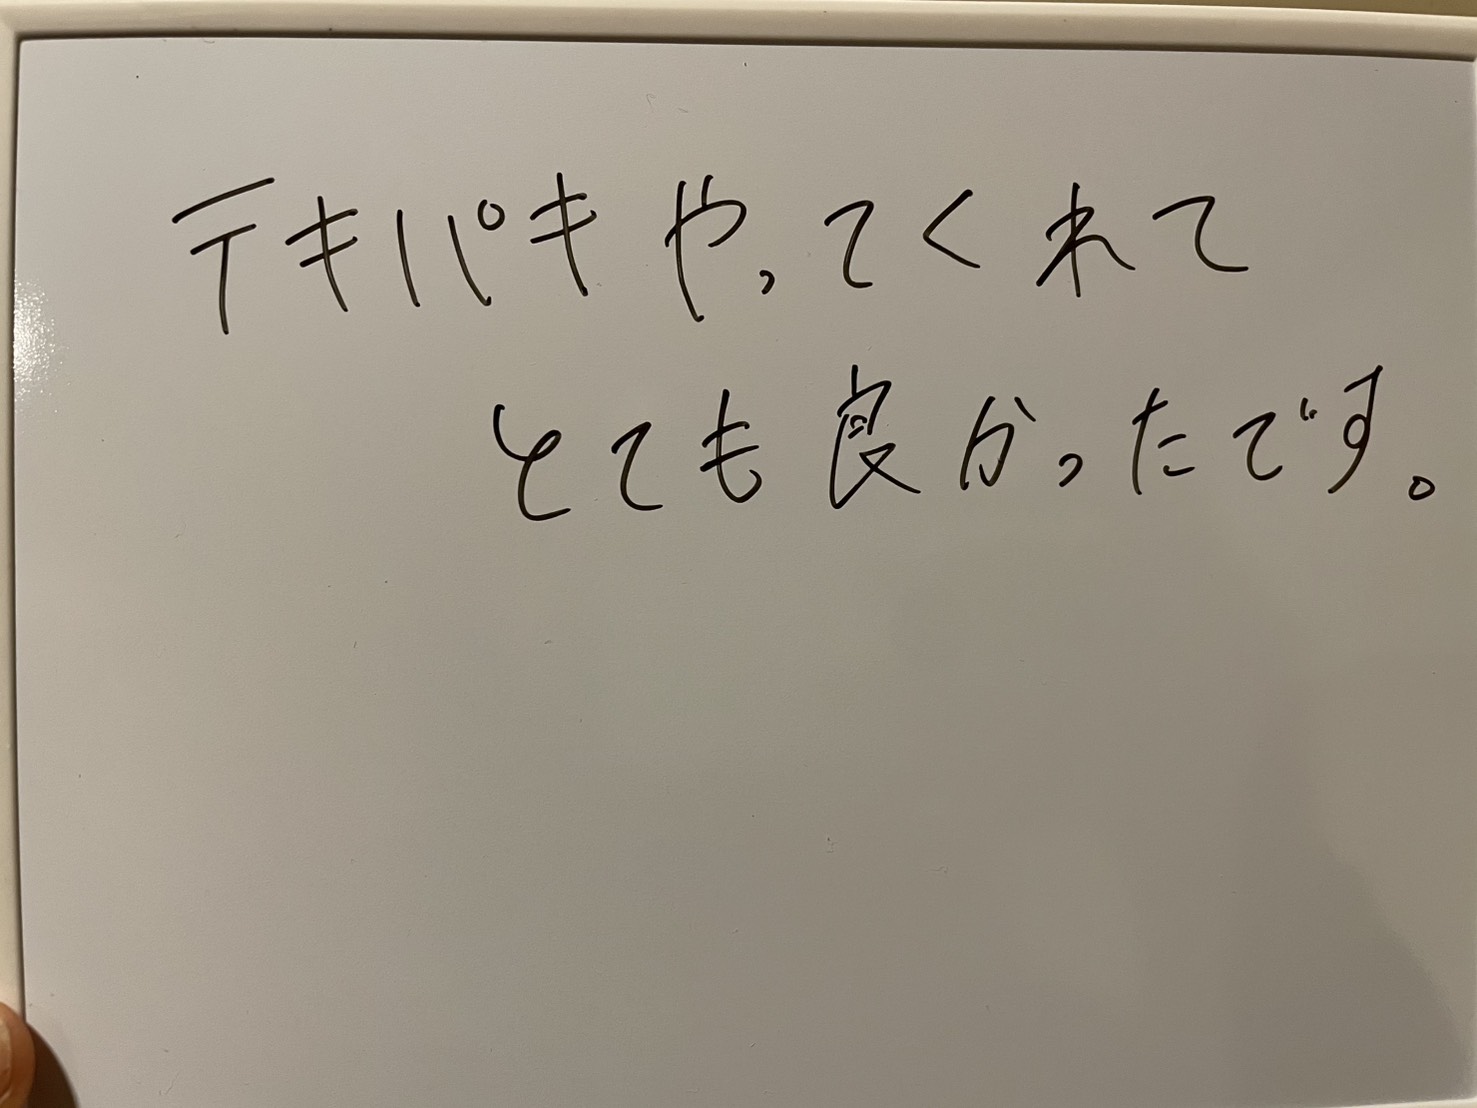 テキパキやってくれて
とても良かったです。